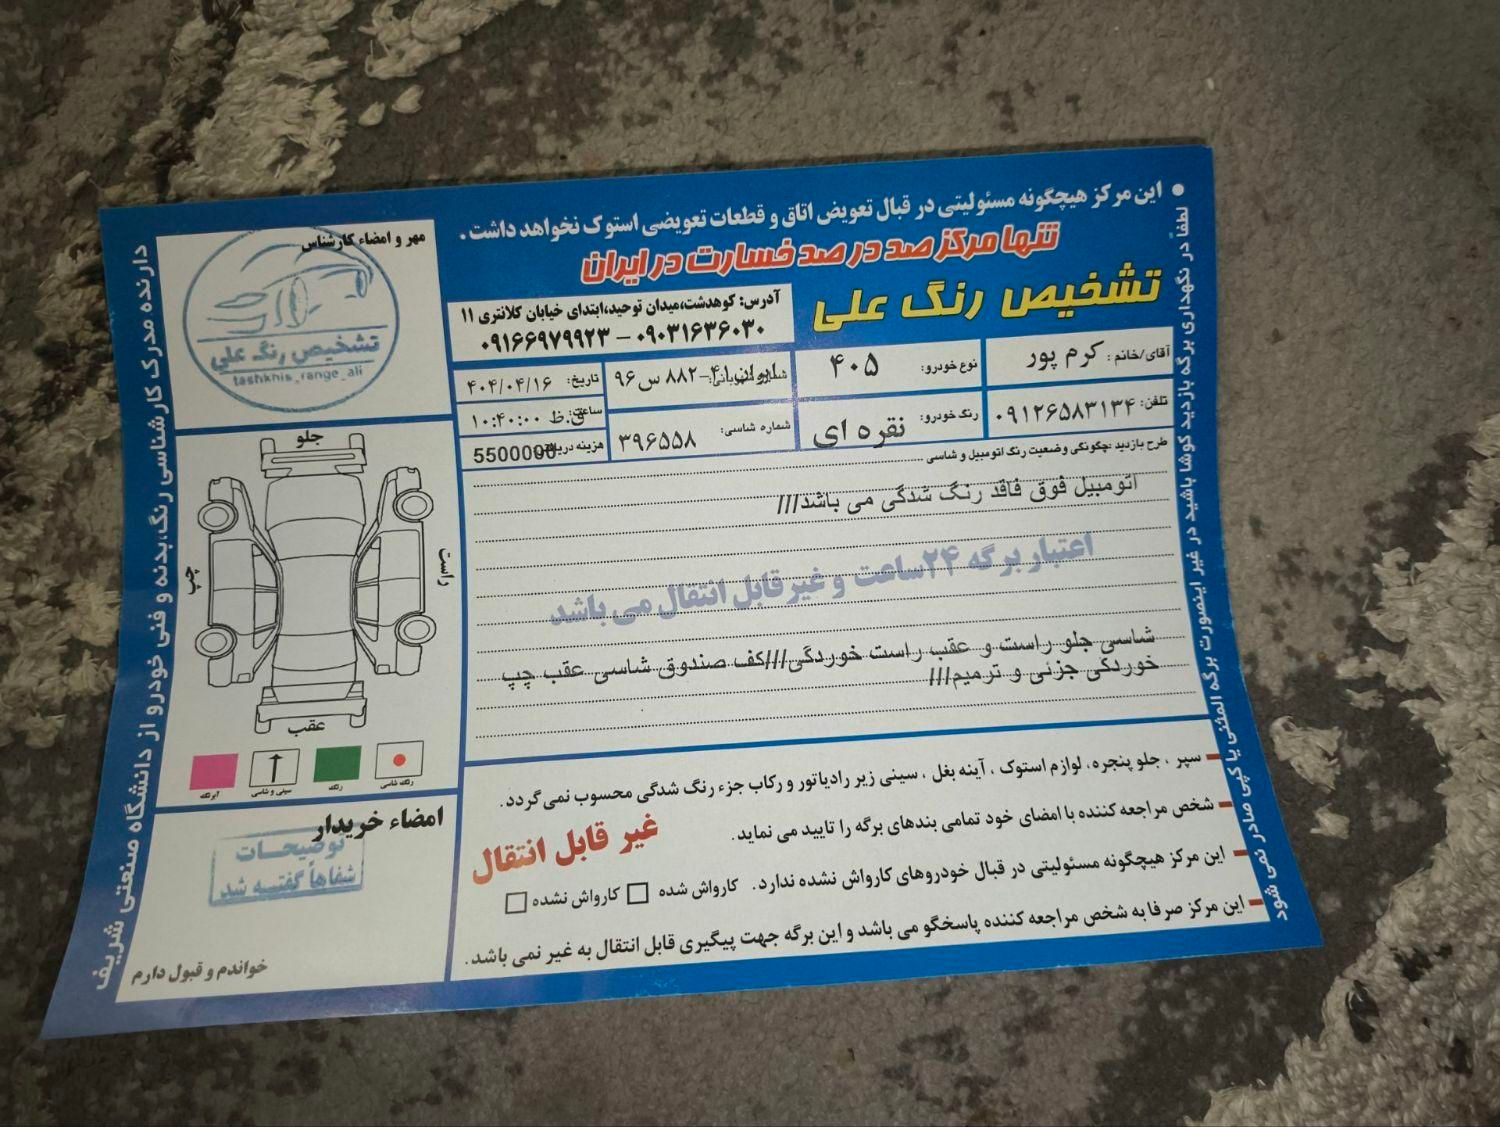 این مرکز هیچگونه مسئولیتی در قبال تعویض اتاق و قطعات تعویضی استوک نخواهد داشت.
لطفاً در نگهداری برگه بازدید کوشا باشید در غیر اینصورت برگه المثنی یا کپی صادر نمی شود
تنها مرکز صد در صد خسارت در ایران
تشخیص رنگ علی
آدرس: کوهدشت،میدان توحید،ابتدای خیابان کلانتری ۱۱
۰۹۰۳۱۶۳۶۰۳۰ – ۰۹۱۶۶۹۷۹۹۲۳
آقای/خانم : کرم پور
نوع خودرو: ۴۰۵
ایران ۴۱-۸۸۲ س ۹۶
تاریخ: ۴۰۴/۰۴/۱۶
تلفن: ۰۹۱۲۶۵۸۳۱۳۴
رنگ خودرو: نقره ای
شماره شاسی: ۳۹۶۵۵۸
ساعت: ۱۰:۴۰:۰۰ ق.ظ
هزینه دریافتی: 5500000
طرح بازدید :چگونگی وضعیت رنگ اتومبیل و شاسی
اتومبیل فوق فاقد رنگ شدگی می باشد///
اعتبار برگه ۲۴ساعت و غیرقابل انتقال می باشد
شاسی جلو راست و عقب راست خوردگی///کف صندوق شاسی عقب چپ
خوردکی جزئی و ترمیم///
سپر ، جلو پنجره، لوازم استوک ، آینه بغل ، سینی زیر رادیاتور و رکاب جزء رنگ شدگی محسوب نمی گردد.
شخص مراجعه کننده با امضای خود تمامی بندهای برگه را تایید می نماید.
غیر قابل انتقال
این مرکز هیچگونه مسئولیتی در قبال خودروهای کارواش نشده ندارد. کارواش شده کارواش نشده
این مرکز صرفا به شخص مراجعه کننده پاسخگو می باشد و این برگه جهت پیگیری قابل انتقال به غیر نمی باشد.
مهر و امضاء کارشناس
تشخیص رنگ علی
tashkhis_range_ali
جلو
راست
چپ
عقب
رنگ شاسی
رنگ
سینی و شاسی
آبرنگ
امضاء خریدار
توضیحات
شفاهاً گفته شد
خواندم و قبول دارم
دارنده مدرک کارشناسی رنگ،بدنه و فنی خودرو از دانشگاه صنعتی شریف